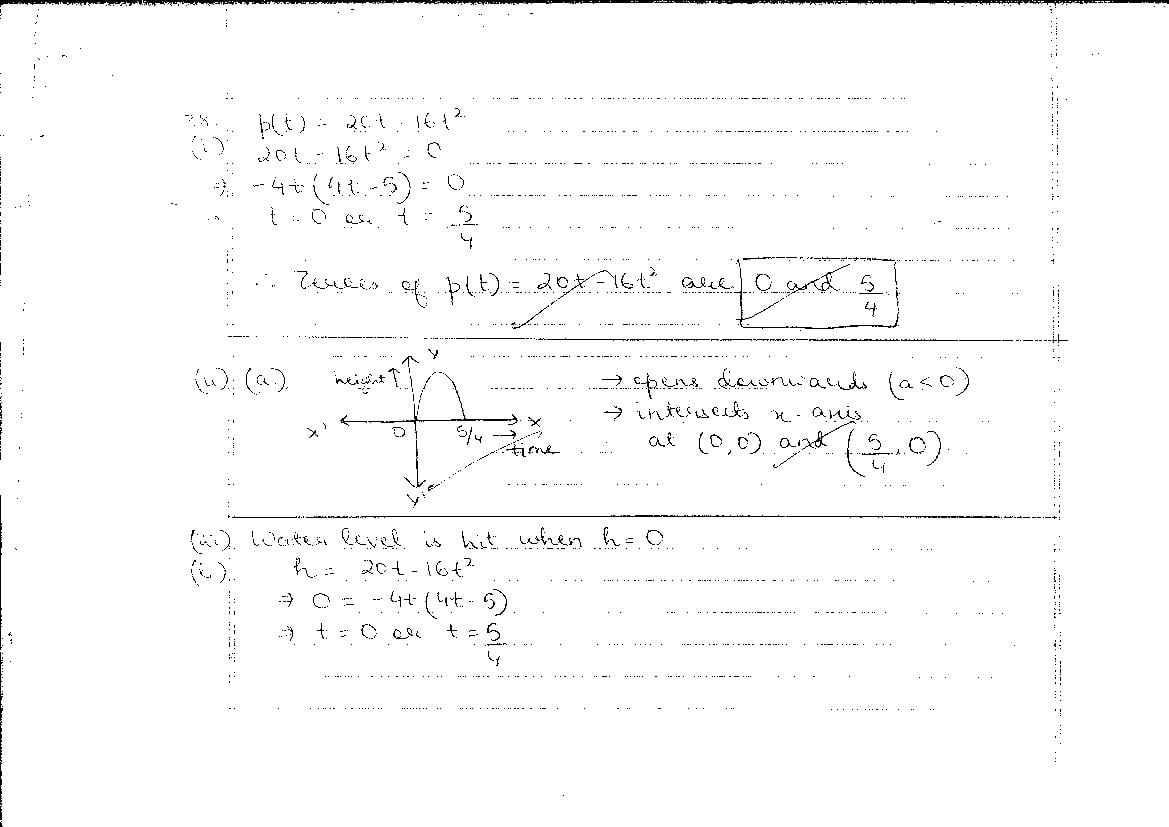 38. p(t) = 20t - 16t²
(i) 20t - 16t² = 0
⇒ -4t(4t - 5) = 0
∴ t = 0 or t = 5/4
∴ Zeroes of p(t) = 20t - 16t² are 0 and 5/4
(ii) (a) height ↑ Y → opens downwards (a<0)
X' O 5/4 → X → intersects x-axis
time at (0,0) and (5/4, 0)
Y'
(iii) Water level is hit when h = 0
(i) h = 20t - 16t²
⇒ 0 = -4t(4t - 5)
⇒ t = 0 or t = 5/4